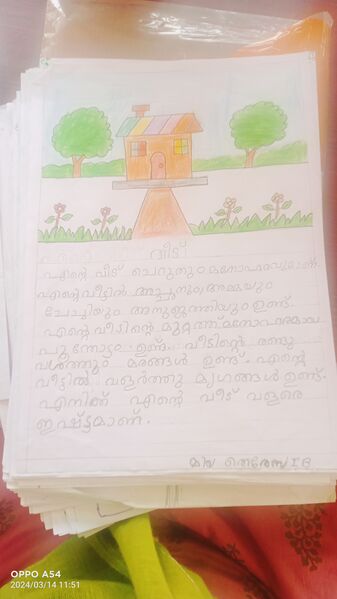 വീട്
എന്റെ വീട് ചെറുതും മനോഹരവുമാണ്.
എന്റെ വീട്ടിൽ അച്ഛനും അമ്മയും
ചേച്ചിയും അനുജത്തിയും ഉണ്ട്.
എന്റെ വീടിന്റെ മുറ്റത്ത് മനോഹരമായ
പൂന്തോട്ടം ഉണ്ട്. വീടിന്റെ രണ്ടു
വശത്തും മരങ്ങൾ ഉണ്ട്. എന്റെ
വീട്ടിൽ വളർത്തു മൃഗങ്ങൾ ഉണ്ട്.
എനിക്ക് എന്റെ വീട് വളരെ
ഇഷ്ട്ടമാണ്.
തെരേസ I B
OPPO A54
2024/03/14 11:51